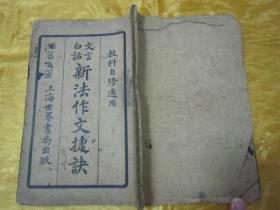 教科自修適用
文言
白話
新法作文捷訣
上海世界書局出版